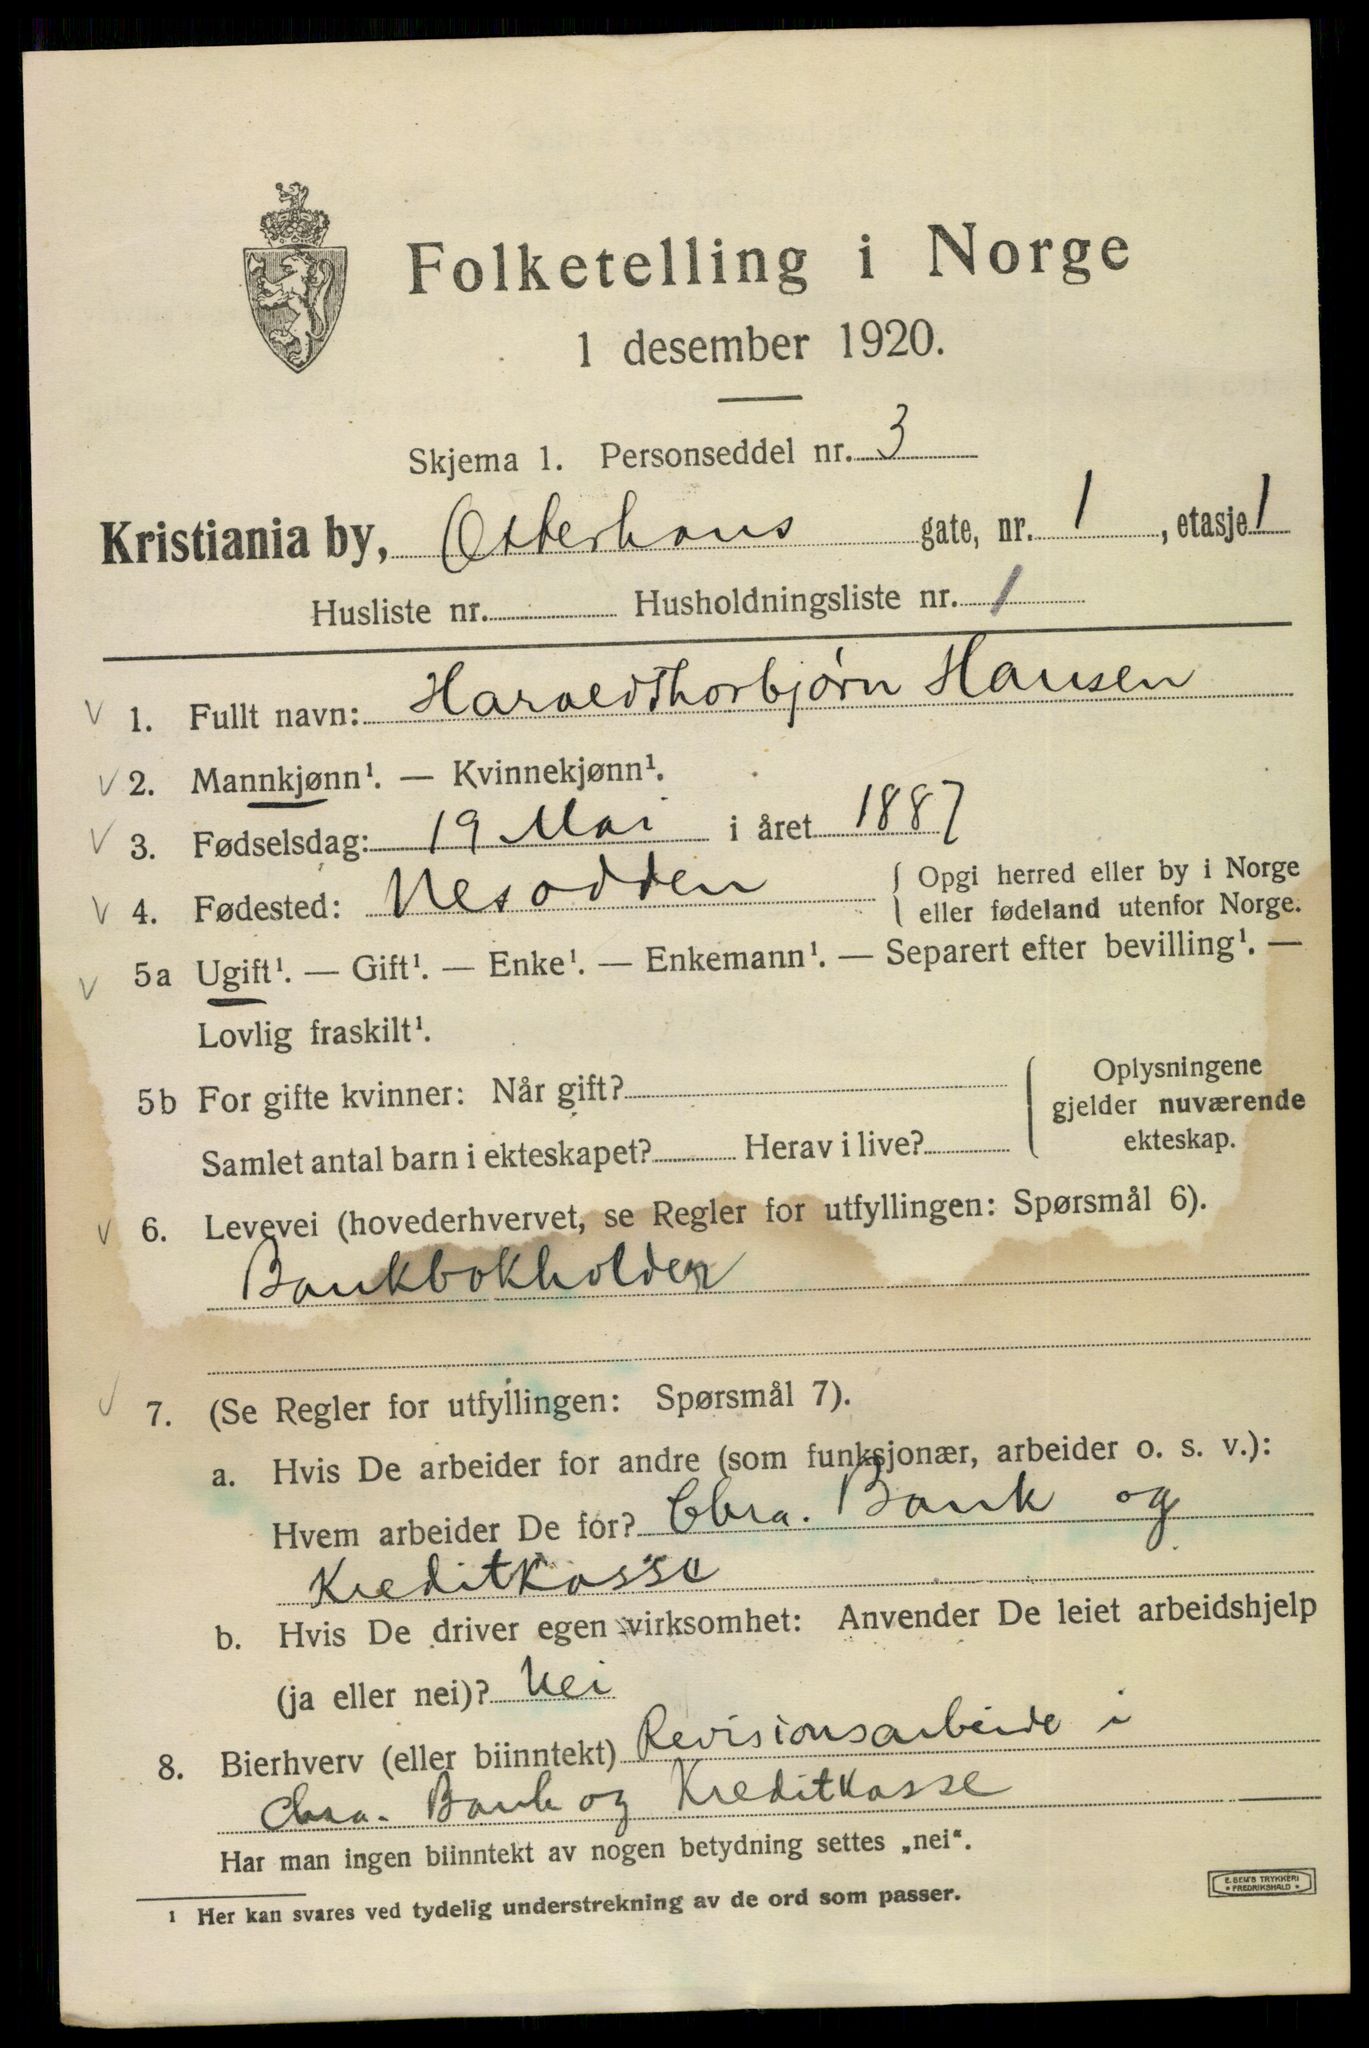 Folketelling i Norge
1 desember 1920.
Skjema 1. Personseddel nr. 3
Kristiania by, Osterhaus gate, nr. 1, etasje 1
Husliste nr. Husholdningsliste nr. 1
1. Fullt navn: Harald Thorbjørn Hansen
2. Mannkjønn¹. — Kvinnekjønn¹.
3. Fødselsdag: 19 Mai i året 1887
4. Fødested: Nesodden { Opgi herred eller by i Norge
eller fødeland utenfor Norge.
5a Ugift¹. — Gift¹. — Enke¹. — Enkemann¹. — Separert efter bevilling¹. —
Lovlig fraskilt¹.
5b For gifte kvinner: Når gift?
Samlet antal barn i ekteskapet? Herav i live?
{ Oplysningene
gjelder nuværende
ekteskap.
6. Levevei (hovederhvervet, se Regler for utfyllingen: Spørsmål 6).
Bankbokholder
7. (Se Regler for utfyllingen: Spørsmål 7).
a. Hvis De arbeider for andre (som funksjonær, arbeider o. s. v.):
Hvem arbeider De for? Chra. Bank og
Kreditkasse
b. Hvis De driver egen virksomhet: Anvender De leiet arbeidshjelp
(ja eller nei)? Nei
8. Bierhverv (eller biinntekt) Revisionsarbeide i
Chra. Bank og Kreditkasse
Har man ingen biinntekt av nogen betydning settes „nei“.
¹ Her kan svares ved tydelig understrekning av de ord som passer.
E. SEM'S TRYKKERI
* FREDRIKSHALD *